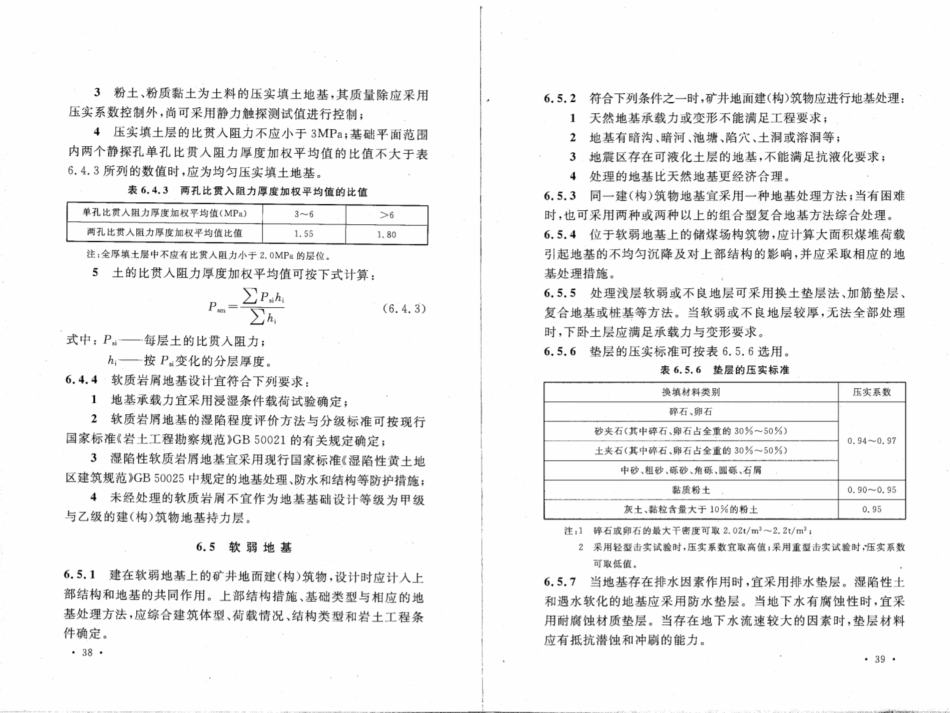 3 粉土、粉质黏土为土料的压实填土地基,其质量除应采用
压实系数控制外,尚可采用静力触探测试值进行控制;
4 压实填土层的比贯入阻力不应小于 3MPa;基础平面范围
内两个静探孔单孔比贯入阻力厚度加权平均值的比值不大于表
6.4.3 所列的数值时,应为均匀压实填土地基。
表 6.4.3 两孔比贯入阻力厚度加权平均值的比值
单孔比贯入阻力厚度加权平均值(MPa) 3~6 >6
两孔比贯入阻力厚度加权平均值比值 1.55 1.80
注:全厚填土层中不应有比贯入阻力小于 2.0MPa 的层位。
5 土的比贯入阻力厚度加权平均值可按下式计算:
P_sm = ∑P_si h_i / ∑h_i (6.4.3)
式中:P_si——每层土的比贯入阻力;
h_i——按 P_si 变化的分层厚度。
6.4.4 软质岩屑地基设计宜符合下列要求:
1 地基承载力宜采用浸湿条件载荷试验确定;
2 软质岩屑地基的湿陷程度评价方法与分级标准可按现行
国家标准《岩土工程勘察规范》GB 50021 的有关规定确定;
3 湿陷性软质岩屑地基宜采用现行国家标准《湿陷性黄土地
区建筑规范》GB 50025 中规定的地基处理、防水和结构等防护措施;
4 未经处理的软质岩屑不宜作为地基基础设计等级为甲级
与乙级的建(构)筑物地基持力层。
6.5 软弱地基
6.5.1 建在软弱地基上的矿井地面建(构)筑物,设计时应计入上
部结构和地基的共同作用。上部结构措施、基础类型与相应的地
基处理方法,应综合建筑体型、荷载情况、结构类型和岩土工程条
件确定。
· 38 ·
6.5.2 符合下列条件之一时,矿井地面建(构)筑物应进行地基处理:
1 天然地基承载力或变形不能满足工程要求;
2 地基有暗沟、暗河、池塘、陷穴、土洞或溶洞等;
3 地震区存在可液化土层的地基,不能满足抗液化要求;
4 处理的地基比天然地基更经济合理。
6.5.3 同一建(构)筑物地基宜采用一种地基处理方法;当有困难
时,也可采用两种或两种以上的组合型复合地基方法综合处理。
6.5.4 位于软弱地基上的储煤场构筑物,应计算大面积煤堆荷载
引起地基的不均匀沉降及对上部结构的影响,并应采取相应的地
基处理措施。
6.5.5 处理浅层软弱或不良地层可采用换土垫层法、加筋垫层、
复合地基或桩基等方法。当软弱或不良地层较厚,无法全部处理
时,下卧土层应满足承载力与变形要求。
6.5.6 垫层的压实标准可按表 6.5.6 选用。
表 6.5.6 垫层的压实标准
换填材料类别 压实系数
碎石、卵石
砂夹石(其中碎石、卵石占全重的 30%~50%)
土夹石(其中碎石、卵石占全重的 30%~50%)
0.94~0.97
中砂、粗砂、砾砂、角砾、圆砾、石屑
黏质粉土 0.90~0.95
灰土、黏粒含量大于 10%的粉土 0.95
注:1 碎石或卵石的最大干密度可取 2.02t/m³~2.2t/m³;
2 采用轻型击实试验时,压实系数宜取高值;采用重型击实试验时,压实系数
可取低值。
6.5.7 当地基存在排水因素作用时,宜采用排水垫层。湿陷性土
和遇水软化的地基应采用防水垫层。当地下水有腐蚀性时,宜采
用耐腐蚀材质垫层。当存在地下水流速较大的因素时,垫层材料
应有抵抗潜蚀和冲刷的能力。
· 39 ·